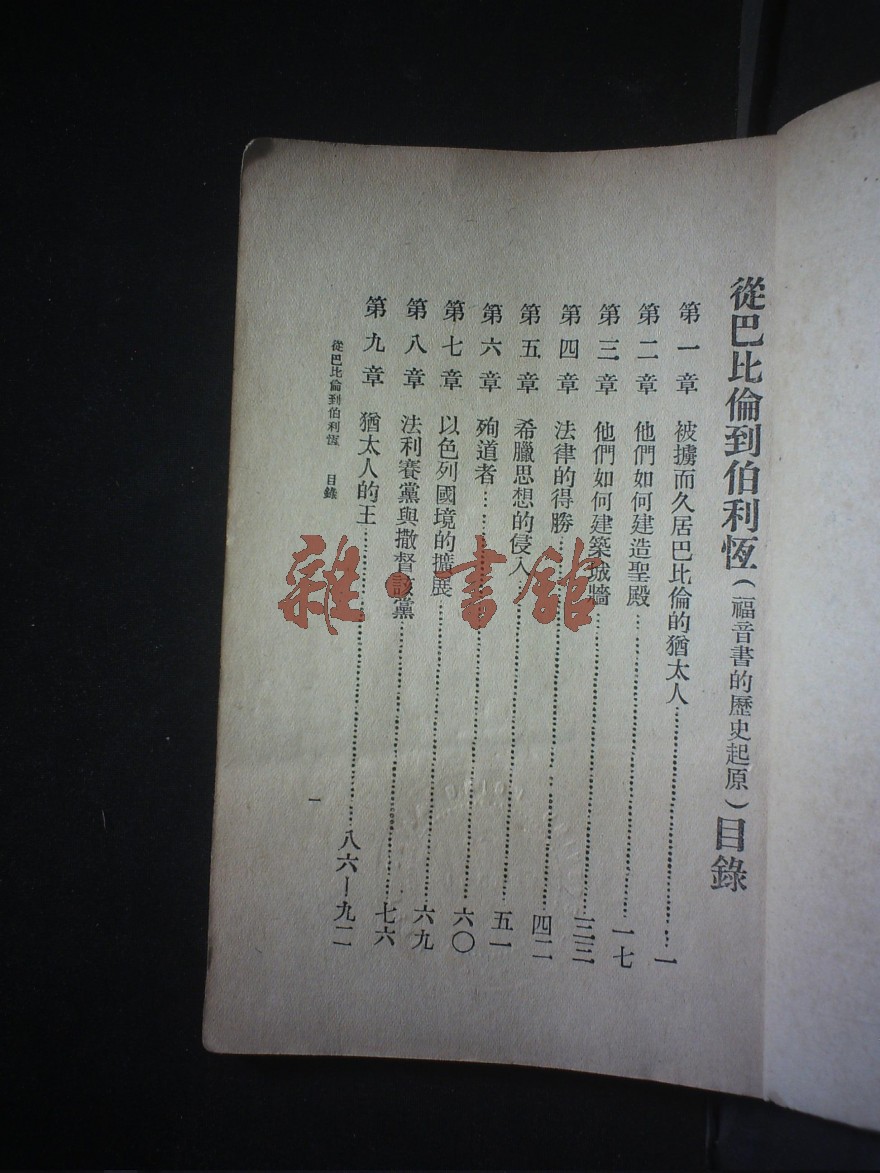 從巴比倫到伯利恆(福音書的歷史起原)目錄
第一章 被擄而久居巴比倫的猶太人……一
第二章 他們如何建造聖殿……一七
第三章 他們如何建築城牆……三三
第四章 法律的得勝……四二
第五章 希臘思想的侵入……五一
第六章 殉道者……六〇
第七章 以色列國境的擴展……六九
第八章 法利賽黨與撒督該黨……七六
第九章 猶太人的王……八六—九二
從巴比倫到伯利恆 目錄
一
雜·書館